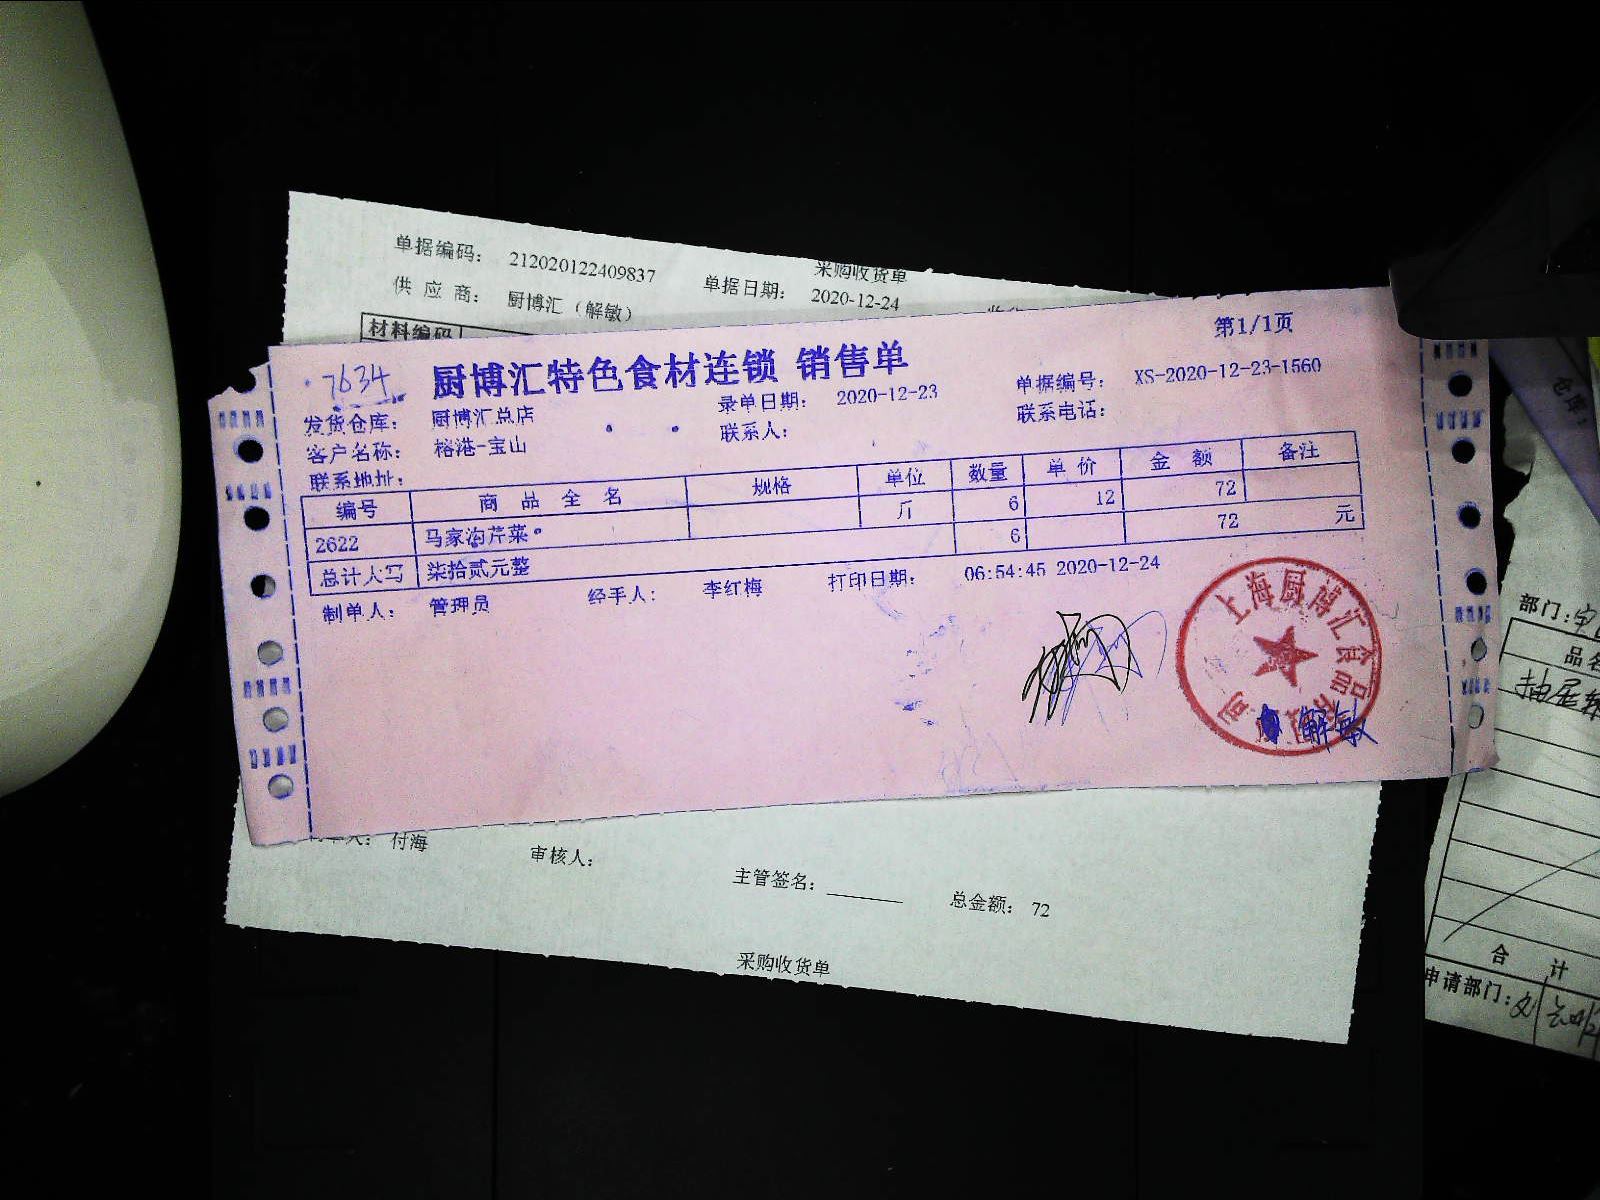 采购收货单
单据编码: 212020122409837 单据日期: 2020-12-24
供应商: 厨博汇(解敏)
材料编码
第1/1页
7634 厨博汇特色食材连锁 销售单
发货仓库: 厨博汇总店 录单日期: 2020-12-23 单据编号: XS-2020-12-23-1560
客户名称: 榕港-宝山 联系人: 联系电话:
联系地址:
编号 商品全名 规格 单位 数量 单价 金额 备注
2622 马家沟芹菜 斤 6 12 72
总计大写 柒拾贰元整 6 72 元
制单人: 管理员 经手人: 李红梅 打印日期: 06:54:45 2020-12-24
上海厨博汇食品有限公司
解敏
付海 审核人: 主管签名: 总金额: 72
采购收货单
仓库:
部门:
品名
合计
申请部门: